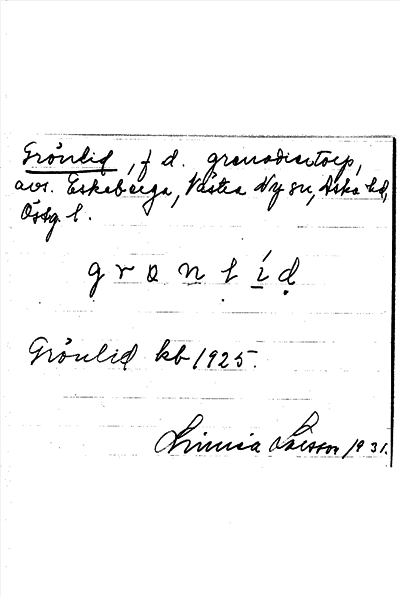 Grönlid, f d. grenadiertorp,
avs. Eskeberga, Västra Ny sn, Aska hd,
Östg. l.
g r ö n l í d
Grönlid kb 1925.
Linnea Larsson 1931.